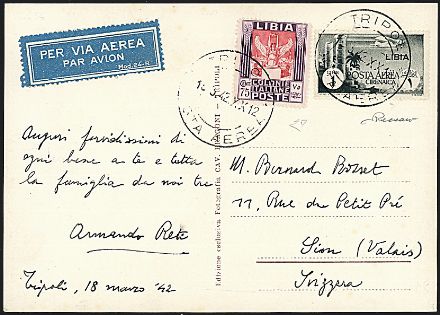 PER VIA AEREA
PAR AVION
Mod. 24-B
LIBIA
COLONIE
ITALIANE
POSTE
75
TRIPOLI
POSTA AEREA
LIBIA
POSTA AEREA
CIRENAICA
TRIPOLI
Auguri fervidissimi di
ogni bene a te e tutta
la famiglia da noi tre
Armando
Tripoli, 18 marzo '42
Edizione esclusiva Fotografia CAV.
M. Bernard Bosset
11, Rue du Petit Pré
Sion (Valais)
Svizzera